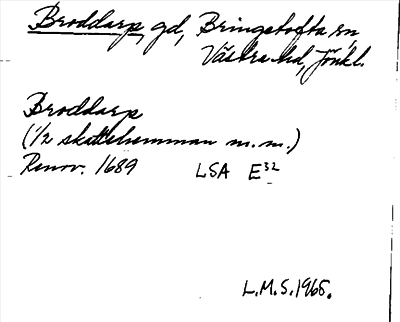 Broddarp, gd, Bringetofta sn
Västra hd, Jönkl.
Broddarp
(1/2 skattehemman m.m.)
Renov. 1689 LSA E32
L.M.S. 1965.